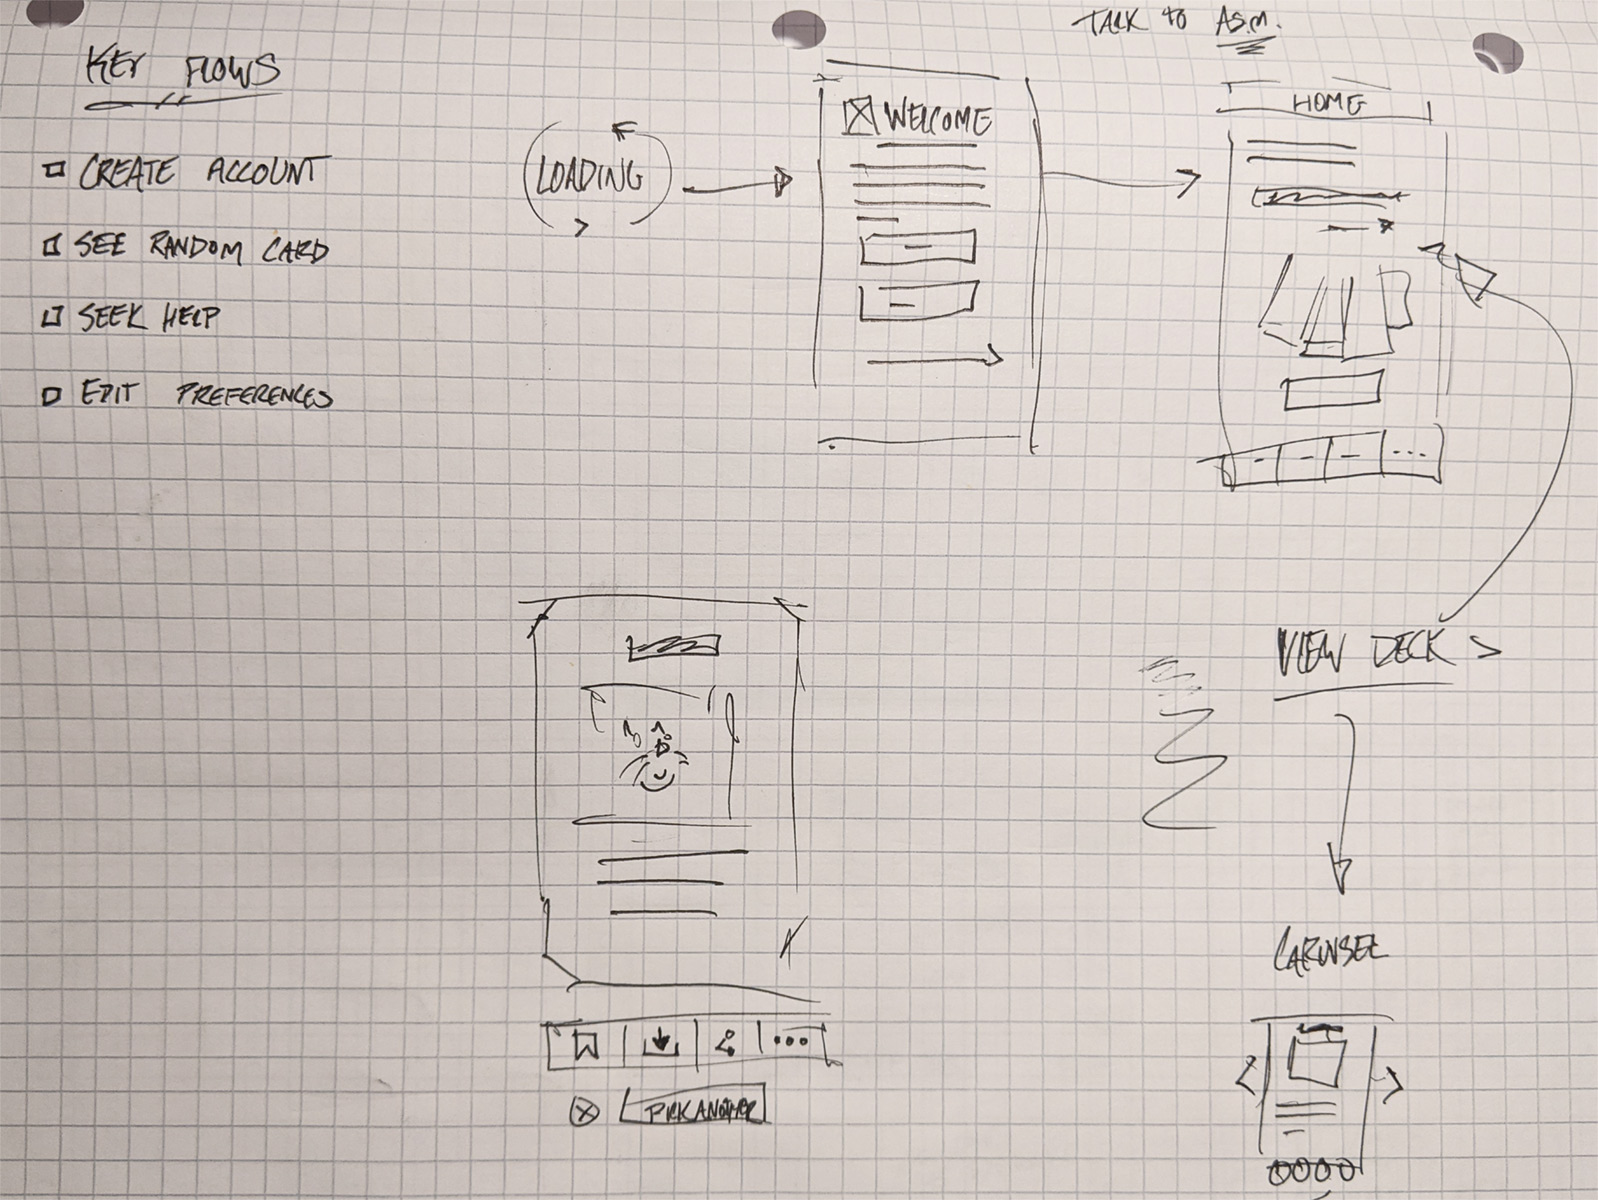 TALK to A.S.M.
KEY FLOWS
CREATE ACCOUNT
SEE RANDOM CARD
SEEK HELP
EDIT PREFERENCES
LOADING
WELCOME
HOME
VIEW DECK >
CAROUSEL
PICK ANOTHER